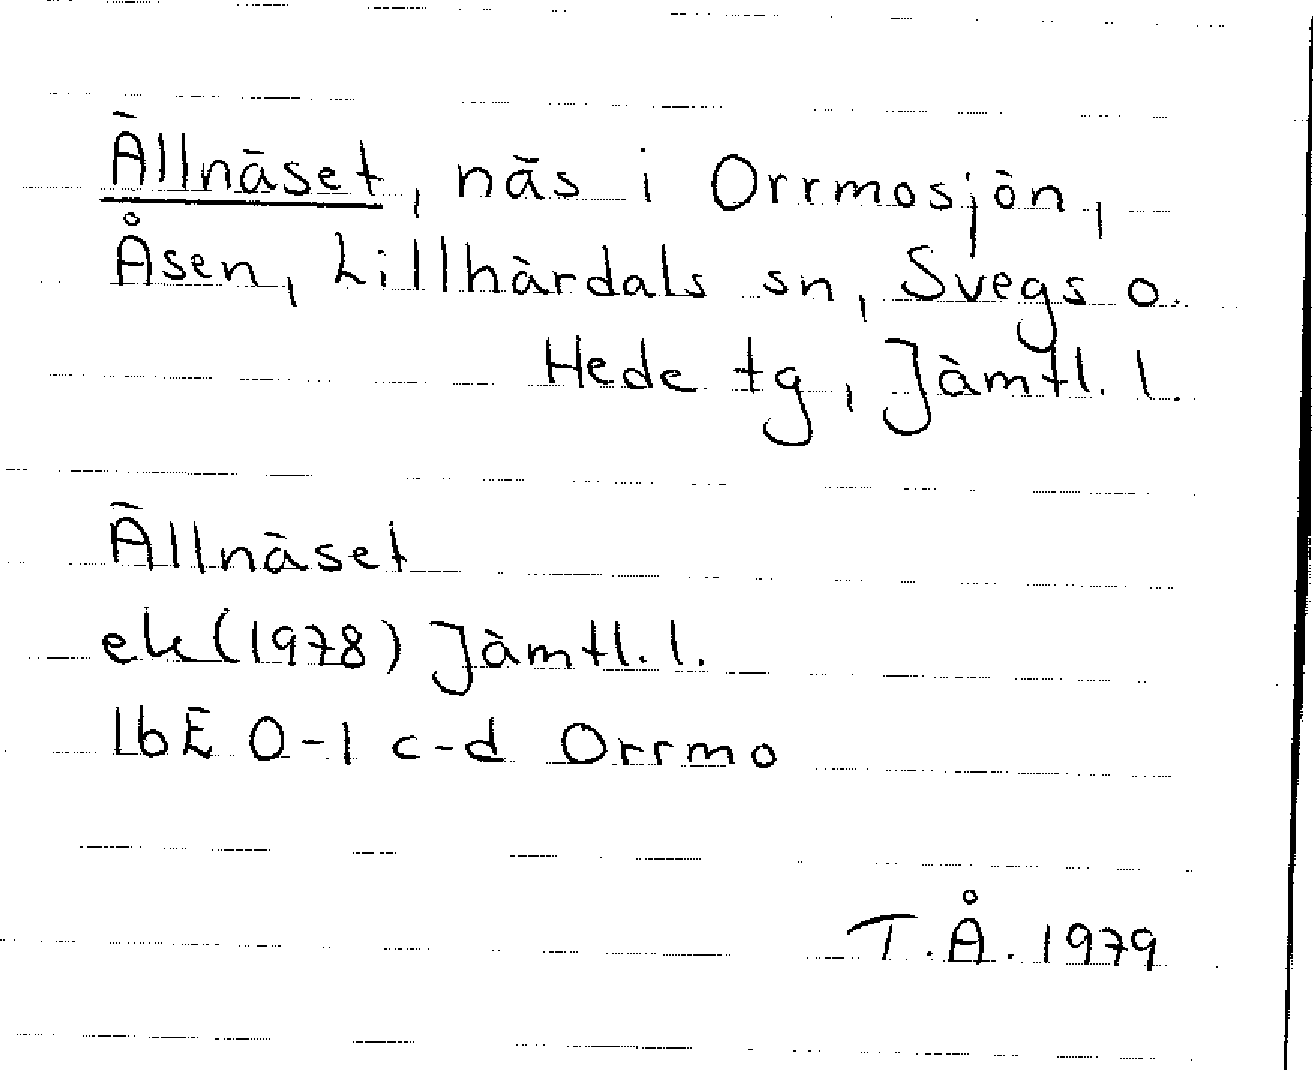 Ällnäset, näs i Orrmosjön,
Åsen, Lillhärdals sn, Svegs o.
Hede tg, Jämtl. l.
Ällnäset
ek (1978) Jämtl. l.
LbE 0-1 c-d Orrmo
T.Å. 1979